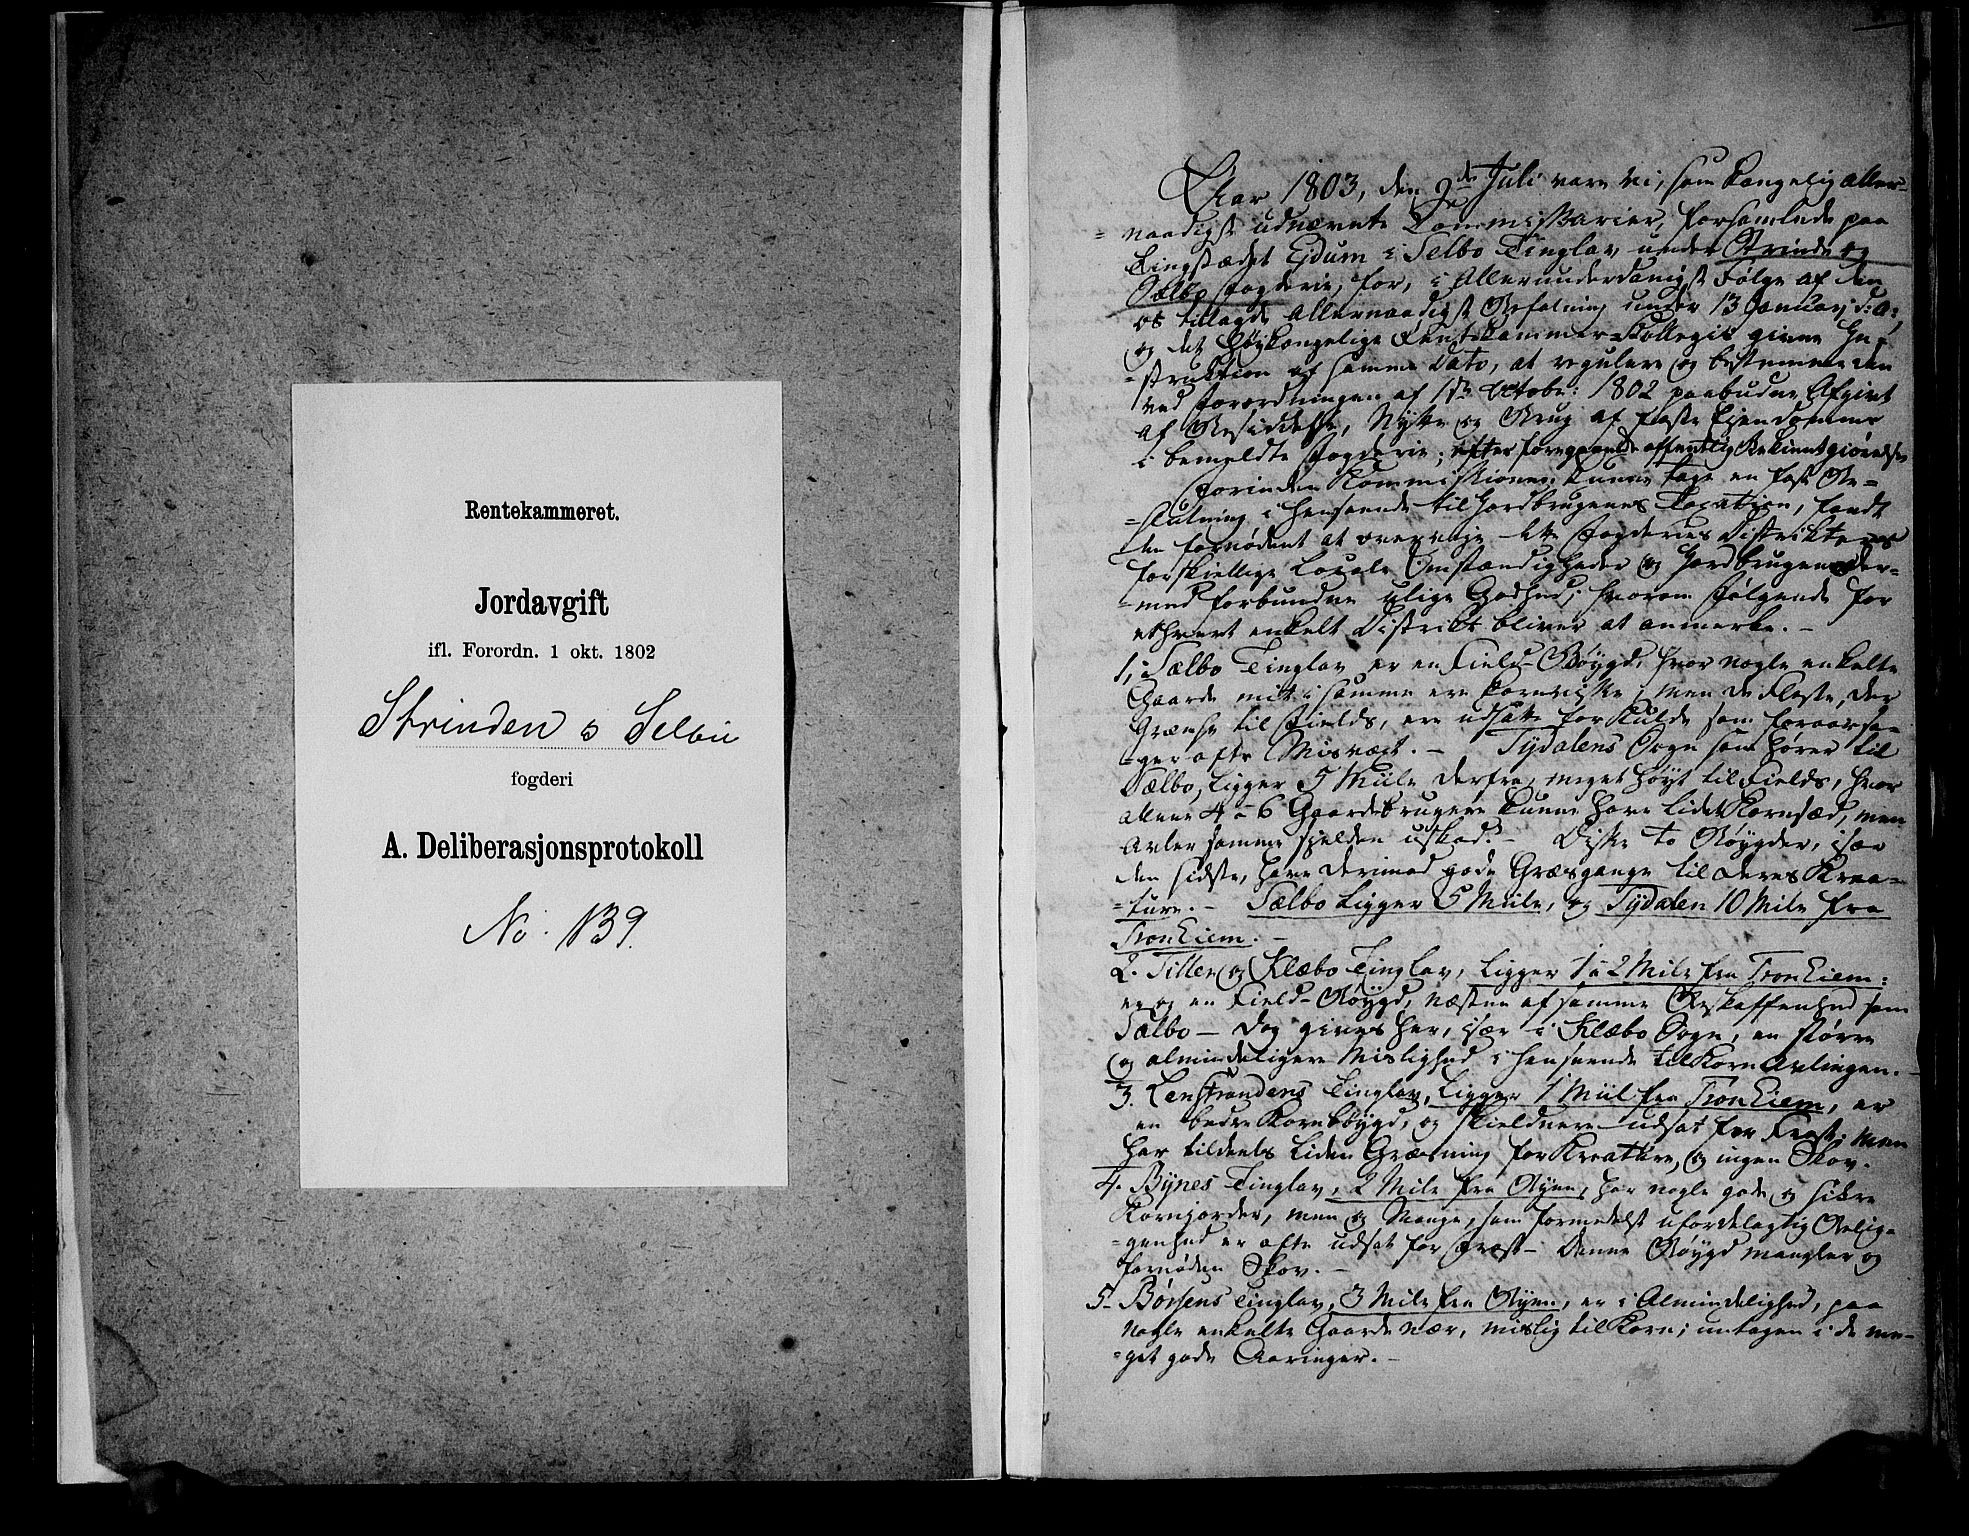 Rentekammeret.
Jordavgift
ifl. Forordn. 1 okt. 1802
Strinden o Selbu
fogderi
A. Deliberasjonsprotokoll
No. 139.
Aar 1803, den 2de Juli vare vi, som kongelig aller-
=naadigst udnævnte Commissarier, forsamlede paa
Tingstædet Ejdum i Selbo Tinglav, under Strinde og
Sælbo Fogderie, for, i Allerunderdanigst Følge af den
os tillagde Allernaadigst Befalning under 13 Januar; d: A:,
og det Høykongelige Rentekammer-Kollegii givne In-
=struktion af samme Dato, at regulere og bestemme den
ved Forordningen af 1ste Octobr: 1802 paabudne Afgivt
af Besiddelse, Nytte og Brug af faste Eiendomme
i bemeldte Fogderie; efter foregaaende offentlig Bekiendtgiørelse
Forinden Kommissionen kunne tage en fast Be=
=slutning i Henseende til Jordbrugenes Taxation, fandt
den fornødent at overveje dette Fogderies Distrikters
forskiellige Locale Omstændigheder og Jordbrugenes der-
=med forbundne ulige Godhed; hvorom Følgende for
ethvert enkelt Distrikt bliver at anmerke. -
1, Sælbo Tinglav er en Field-Bøygd, hvor nogle enkelte
Gaarde mit i samme ere kornvisse; men de fleste, der
Grænse til Fields, ere udsatte for Kulde som foraarsa-
=ger ofte Misvæxt. - Tydalens Sogn som hører til
Sælbo, ligger 5 Miile derfra, meget høyt til Fields, hvor
allene 4 a 6 Gaardebrugere kunne have lidet Kornsæd, men
Avler samme sielden uskad. - Disse to Bøygder, især
den sidste, have derimod gode Græsgange til deres Krea-
=ture. - Sælbo ligger 5 Miile, og Tydalen 10 Mile fra
Tronhiem. -
2. Tiller og Klæbo Tinglav, ligger 1 a 2 Mile fra Tronhiem:
er og en Field-Bøygd, næsten af samme Beskaffenhed som
Sælbo - dog gives her, især i Klæbo Sogn, en større
og almindeligere Mislighed i Henseende til Korn Avlingen. -
3. Lenstrandens Tinglav, ligger 1 Miil fra Tronhiem, er
en bedre Kornbøygd, og skieldnere udsat for Frost; men
har tildeels liden Græsning for Kreature, og ingen Skov.
4. Bynes Tinglav, 2 Mile fra Byen, har nogle gode og sikre
Kornjorder, men og Mange, som formedelst ufordelagtig Belig-
=genhed er ofte udsat for Frost - Denne Bøygd mangler og
fornøden Skov. -
5. Børsens Tinglav, 3 Mile fra Byen, er i Almindelighed, paa
nogle enkelte Gaarde nær, mislig til Korn; undtagen i de me-
=get gode Aaringer. -